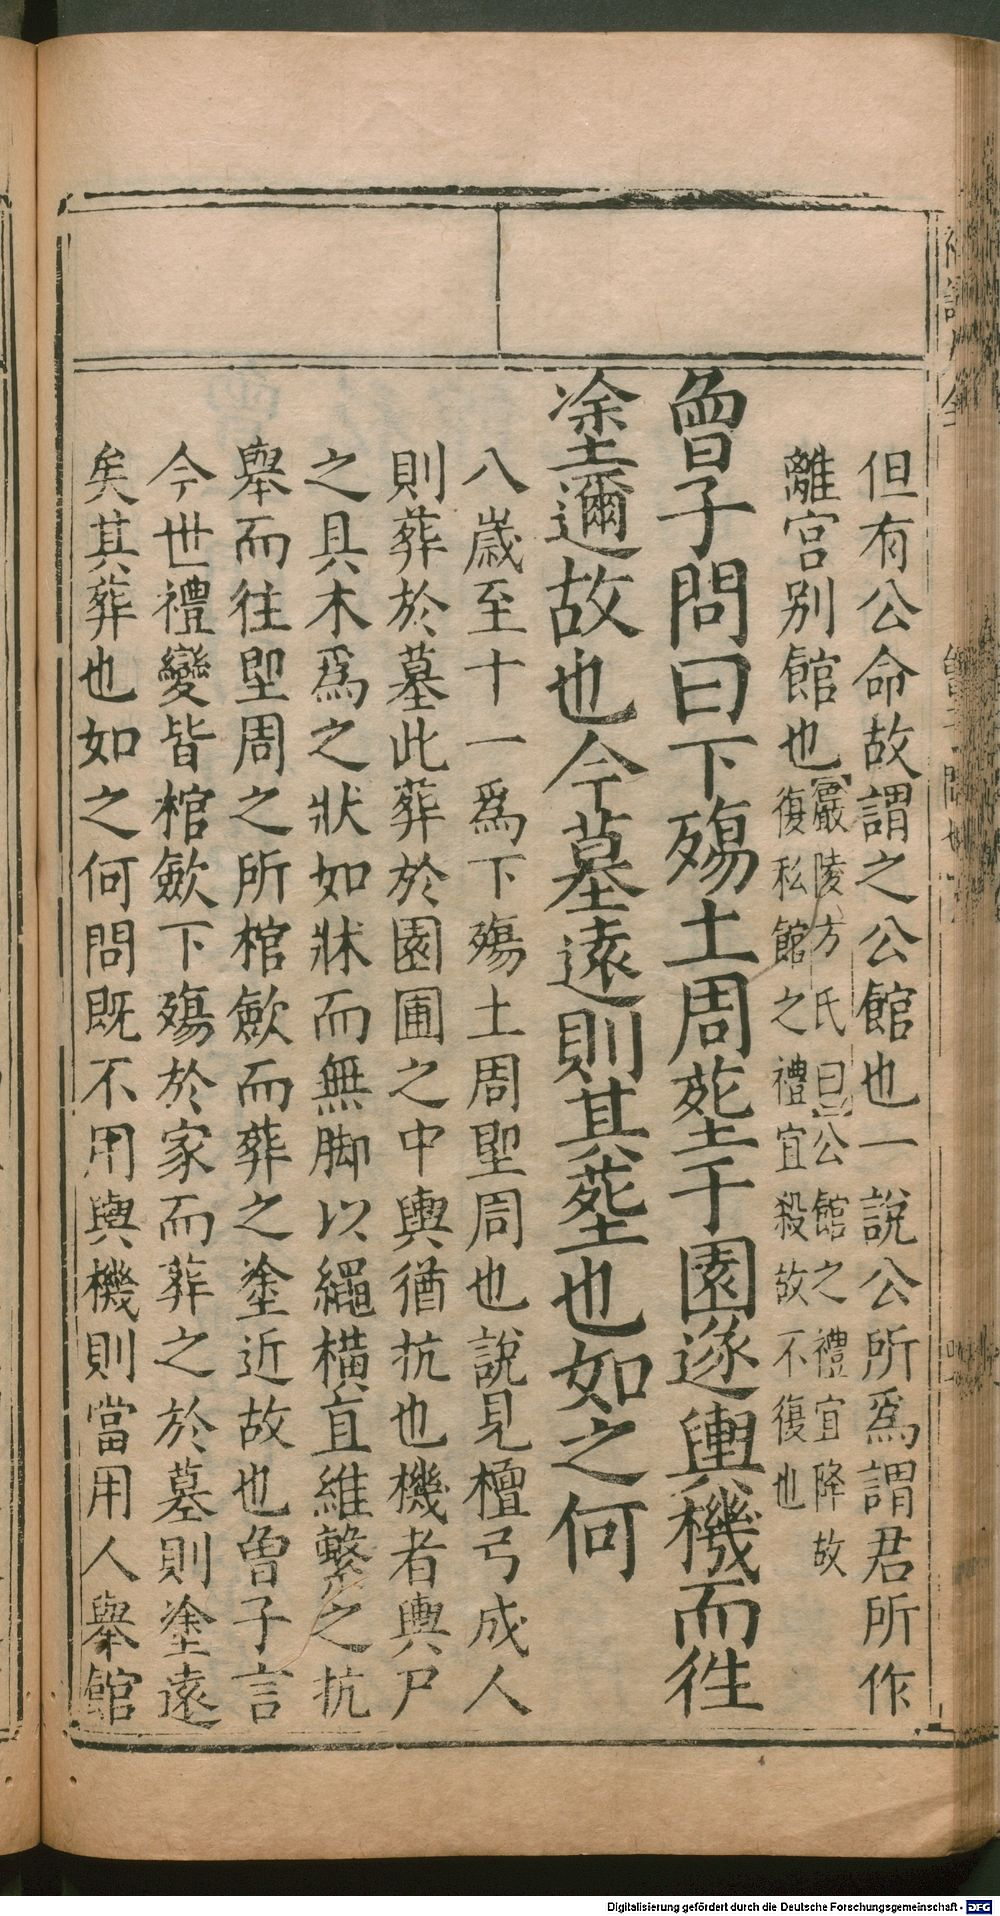 但有公命故謂之公館也一說公所爲謂君所作
離宮别館也【嚴陵方氏曰】公館之禮宜降故
復私館之禮宜殺故不復也
曾子問曰下殤土周塟于園遂輿機而徃
塗邇故也今墓遠則其塟也如之何
八歲至十一爲下殤土周聖周也說見檀弓成人
則葬於墓此葬於園圃之中輿猶抗也機者輿尸
之具木爲之狀如牀而無脚以繩横直維繫之抗
舉而往聖周之所棺歛而葬之塗近故也曾子言
今世禮變皆棺歛下殤於家而葬之於墓則塗遠
矣其葬也如之何問既不用輿機則當用人舉館
Digitalisierung gefördert durch die Deutsche Forschungsgemeinschaft - DFG